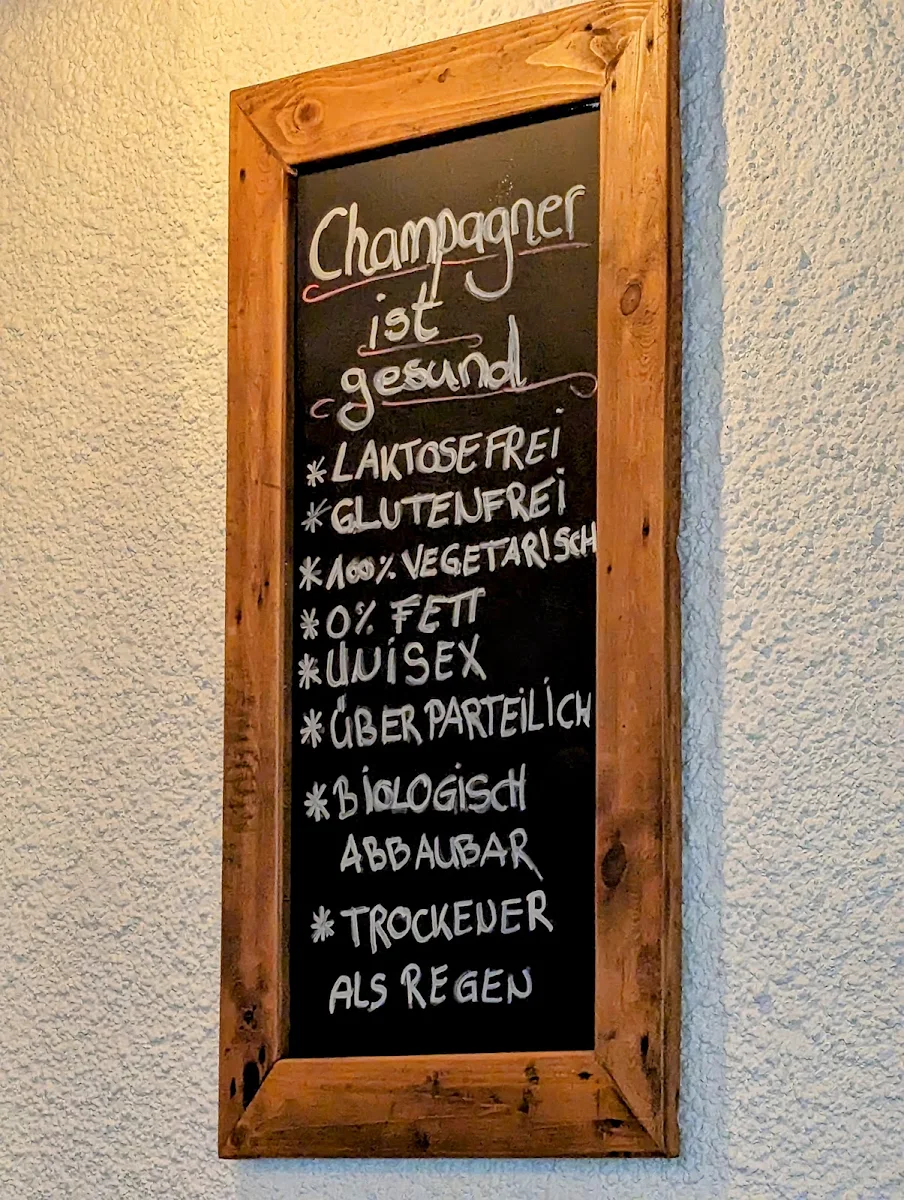 Champagner
ist
gesund
*LAKTOSEFREI
*GLUTENFREI
*100% VEGETARISCH
*0% FETT
*UNISEX
*ÜBERPARTEILICH
*BIOLOGISCH
ABBAUBAR
*TROCKENER
ALS REGEN